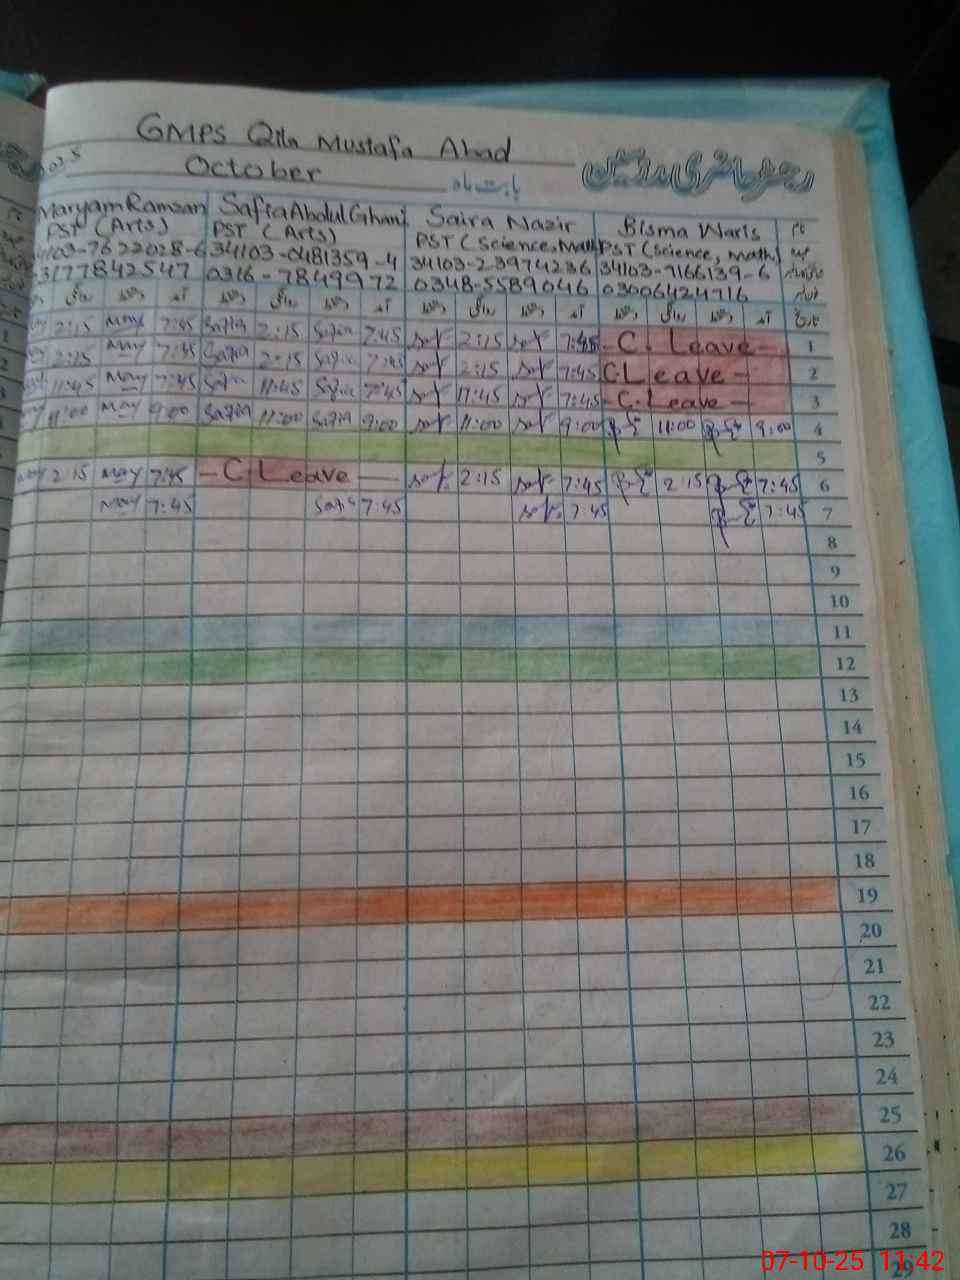 GMPS Qila Mustafa Abad
2025 October بابت ماہ رجسٹر حاضری مدرسین
Maryam Ramzan Safia Abdul Ghani Saira Nazir Bisma Waris نام
PST (Arts) PST (Arts) PST (Science, Math) PST (Science, Math) عہدہ
34103-7622028-6 34103-0481359-4 34103-23974236 34103-9166139-6
03177842547 0316-7849972 0348-5589046 03006424716
روانگی دستخط آمد دستخط روانگی دستخط آمد دستخط روانگی دستخط آمد دستخط روانگی دستخط آمد تاریخ
2:15 May 7:45 Safia 2:15 Safia 7:45 2:15 7:45 - C. Leave - 1
2:15 May 7:45 Safia 2:15 Safia 7:45 2:15 7:45 C Leave - 2
11:45 May 7:45 Safia 11:45 Safia 7:45 11:45 7:45 - C. Leave - 3
11:00 May 9:00 Safia 11:00 Safia 9:00 11:00 9:00 11:00 9:00 4
5
May 2:15 May 7:45 - C Leave - 2:15 7:45 2:15 7:45 6
May 7:45 Safia 7:45 7:45 7:45 7
8
9
10
11
12
13
14
15
16
17
18
19
20
21
22
23
24
25
26
27
28
29
07-10-25 11:42